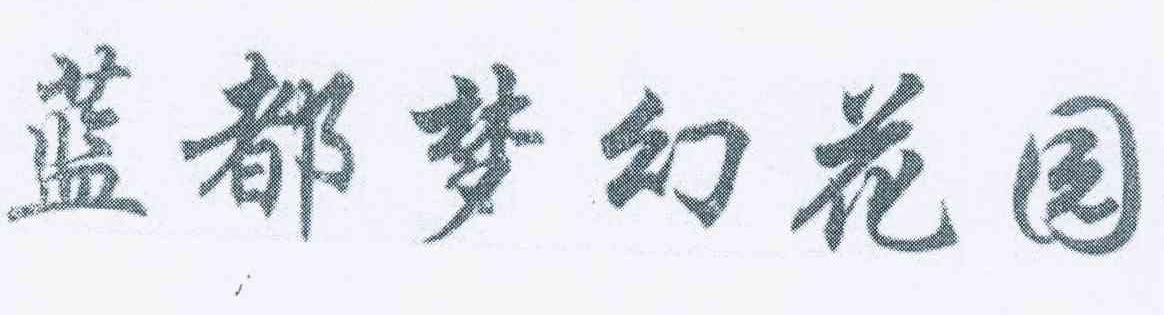 蓝都梦幻花园